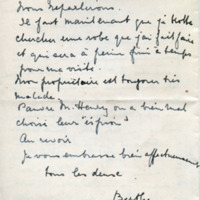 nous reparlerons.
Il fait maintenant que je
chercher une robe que j'ai fait faire
et qui sera à peine fini à temps
pour ma visite.
Mon propriétaire est toujours très
malade.
Pauvre M. Henry on a bien mal
choisi leur "espion"
Au revoir
Je vous embrasse bien affectueusement
tous les deux
Berthe